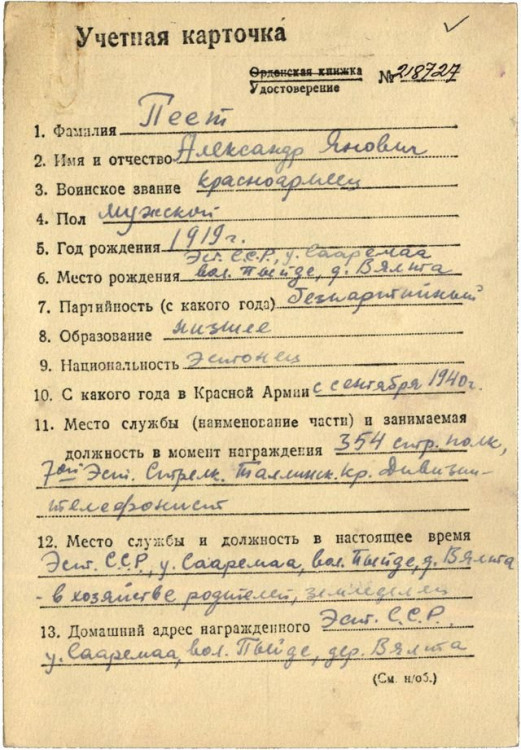 Учетная карточка
Орденская книжка
Удостоверение № 218727
1. Фамилия Пеет
2. Имя и отчество Александр Янович
3. Воинское звание красноармеец
4. Пол мужской
5. Год рождения 1919 г.
Эст. С.С.Р., у. Сааремаа
6. Место рождения вол. Пыйде, д. Вялта
7. Партийность (с какого года) беспартийный
8. Образование низшее
9. Национальность эстонец
10. С какого года в Красной Армии с сентября 1940 г.
11. Место службы (наименование части) и занимаемая
должность в момент награждения 354 стр. полк,
7ой Эст. Стрелк. Таллинск. кр. дивизии-
телефонист
12. Место службы и должность в настоящее время
Эст. С.С.Р., у. Сааремаа, вол. Пыйде, д. Вялта
- в хозяйстве родителей, земледелец
13. Домашний адрес награжденного Эст. С.С.Р.,
у. Сааремаа, вол. Пыйде, дер. Вялта
(См. н/об.)